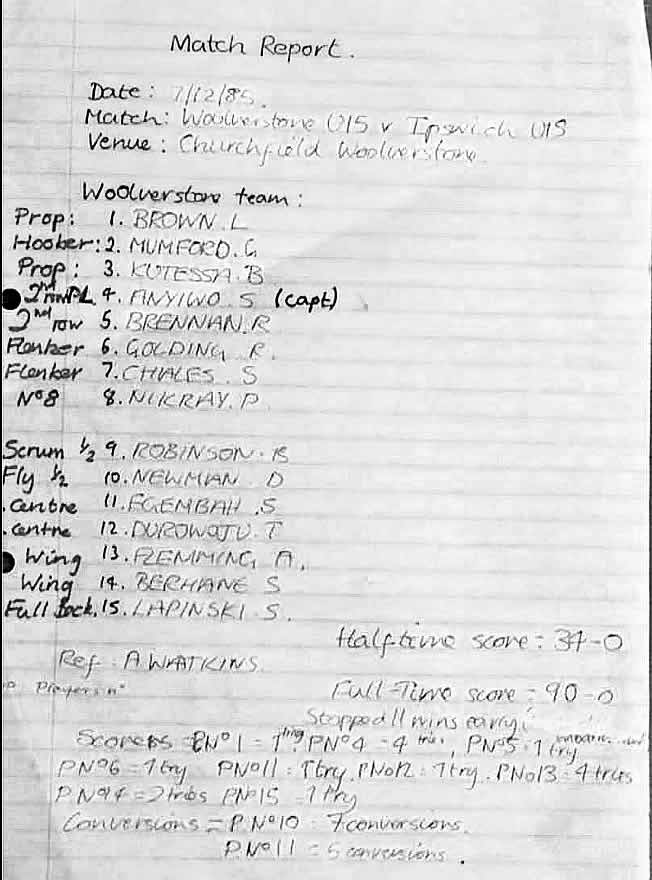 Match Report.
Date: 7/12/85.
Match: Woolverstone U15 v Ipswich U15
Venue: Churchfield Woolverstone.
Woolverstone team:
Prop: 1. BROWN. L
Hooker: 2. MUMFORD. G
Prop: 3. KUTESSA. B
2nd row PL. 4. ANYIWO. S (capt)
2nd row 5. BRENNAN. R
Flanker 6. GOLDING. R.
Flenker 7. CHALES. S
Nº8 8. NUKRAY. P.
Scrum ½ 9. ROBINSON. B
Fly ½ 10. NEWMAN D
.centre 11. EGEMBAH .S
.centre 12. DUROWOJU. T
Wing 13. FLEMMING A.
Wing 14. BERHANE S
Full Back. 15. LAPINSKI. S.
Half time score: 34-0
Ref: A WATKINS.
Players nº
Full-Time score = 90-0
Stopped 11 mins early!
Scorers = PNº1 = 1 try, PNº4 = 4 tries, PNº5 = 1 try
PNº6 = 1 try PNº11 = 1 try. PNº12 = 1 try. PNº13 = 4 tries
PNº14 = 2 tries PNº15 = 1 try
Conversions = P.Nº10 = 7 conversions.
P.Nº11 = 5 conversions.